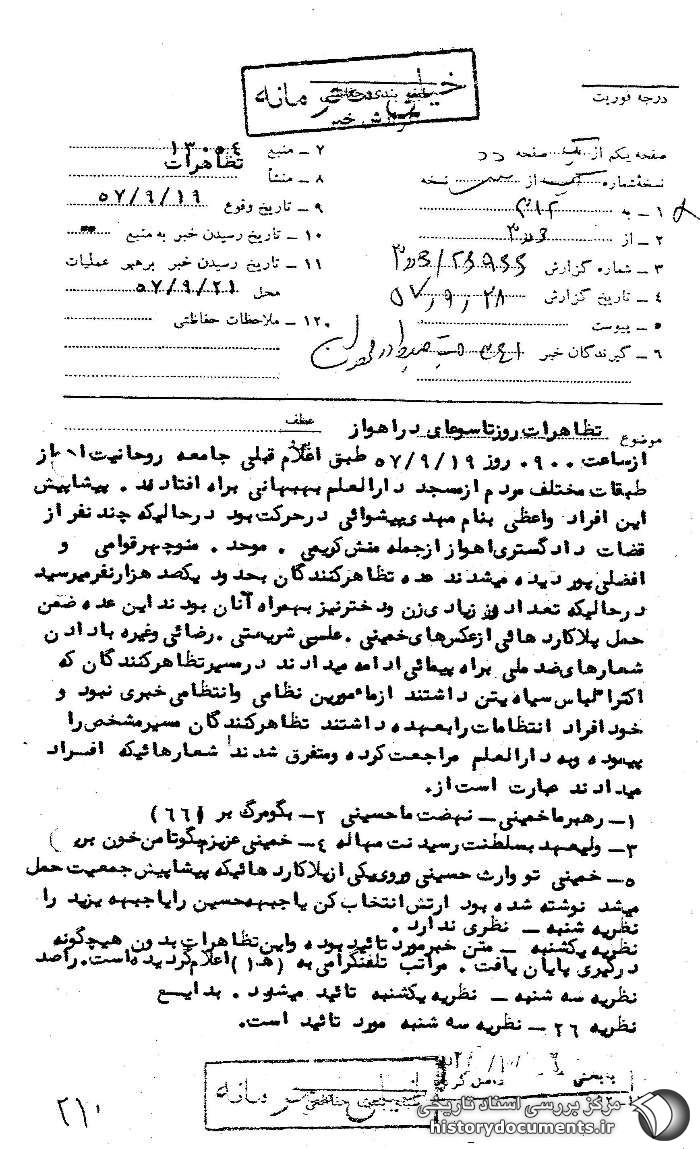 خیلی محرمانه
طبقه بندی حفاظتی
گزارش خبر
درجه فوریت
صفحه یکم از یک صفحه
۷ ـ منبع ۱۳۰۵۴
تظاهرات
نسخه شماره از نسخه
۸ ـ منشأ
۱ ـ به ۳۱۲
۹ ـ تاریخ وقوع ۵۷/۹/۱۹
۲ ـ از
۱۰ ـ تاریخ رسیدن خبر به منبع
۳ ـ شماره گزارش
۱۱ ـ تاریخ رسیدن خبر برهبر عملیات
محل ۵۷/۹/۲۱
۴ ـ تاریخ گزارش ۵۷٫۹٫۲۸
۵ ـ پیوست
۱۲ ـ ملاحظات حفاظتی
۶ ـ گیرندگان خبر
موضوع تظاهرات روز تاسوعای در اهواز
عطف
از ساعت ۰۹۰۰ روز ۵۷/۹/۱۹ طبق اعلام قبلی جامعه روحانیت از
طبقات مختلف مردم از مسجد دارالعلم بهبهانی براه افتادند . پیشاپیش
این افراد واعظی بنام مهدی پیشوائی در حرکت بود در حالیکه چند نفر از
قضات دادگستری اهواز از جمله منش کریمی . موحد . منوچهر قوامی و
افضلی پور دیده میشدند عده تظاهرکنندگان بحدود یکصد هزار نفر میرسید
در حالیکه تعداد زیادی زن و دختر نیز بهمراه آنان بودند این عده ضمن
حمل پلاکارد هائی از عکس های خمینی . علی شریعتی . رضائی وغیره با دادن
شعارهای ضد ملی براه پیمائی ادامه میدادند در مسیر تظاهرکنندگان که
اکثرا لباس سیاه بتن داشتند از مامورین نظامی وانتظامی خبری نبود و
خود افراد انتظامات را بعهده داشتند تظاهرکنندگان مسیر مشخص را
پیموده و به دارالعلم مراجعت کرده ومتفرق شدند شعارهائیکه افراد
میدادند عبارت است از.
۱ـ رهبر ما خمینی ـ نهضت ما حسینی ۲ـ بگو مرگ بر (۶۶)
۳ـ ولیعهد بسلطنت رسیدنت محاله ۴ـ خمینی عزیزم بگو تا من خون بریزم
۵ـ خمینی تو وارث حسینی وروی یکی از پلاکارد هائیکه پیشاپیش جمعیت حمل
میشد نوشته شده بود ارتش انتخاب کن یا جبهه حسین را یا جبهه یزید را
نظریه شنبه ـ نظری ندارد .
نظریه یکشنبه ـ متن خبر مورد تائید بوده واین تظاهرات بدون هیچگونه
درگیری پایان یافت . مراتب تلفنگرامی به (هـ۱) اعلام گردیده است. راصد
نظریه سه شنبه ـ نظریه یکشنبه تائید میشود . بدایع
نظریه ۲۶ ـ نظریه سه شنبه مورد تائید است.
خیلی محرمانه
طبقه بندی حفاظتی
۲۱۰
مرکز بررسی اسناد تاریخی
historydocuments.ir